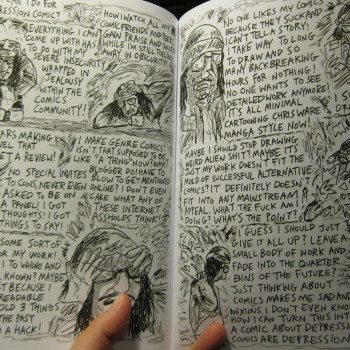 CAN I DO FOR
ESSION COMIC?
EVERYTHING I CAN
COME UP WITH HAS
TO DO WITH MY
SEVERE INSECURITY
WRAPPED IN
JEALOUSY
WITHIN THE
COMICS
COMMUNITY!
HOW I WATCH ALL MY
COMIC FRIENDS AND
GAIN PRAISE AND SUCC
WHILE I'M STILL TO
AWAY IN OBSCURITY
ARS MAKING
VEL THAT
ET A REVIEW!
NO SPECIAL INVITES
TO CONS, NEVER EVEN
ASKED TO BE ON
A PANEL! I GOT
THOUGHTS! I GOT
THINGS TO SAY!
I MAKE GENRE COMICS!
ISN'T THAT SUPPOSED TO BE
LIKE "A THING" NOW? WHAT
BLOGGER DO I HAVE TO
BLOW TO GET MENTIONED
ONLINE? I DON'T EVEN
CARE WHAT ANY OF
THESE INTERNET
ASSHOLES THINK!
SOME SORT OF
FOR MY WORK!
I TO WHINE AND
LL KNOW? MAYBE
UST BECAUSE I
READABLE
OLD 3 THINGS
THE PAST
A HACK!
NO ONE LIKES MY COMICS
BECAUSE THEY SUCK AND
I CAN'T TELL A STORY!
I TAKE WAY TO LONG
TO DRAW AND SO
MANY BACKBREAKING
HOURS FOR NOTHING!
NO ONE WANTS TO SEE
DETAILED WORK ANYMORE!
IT'S ALL MINIMAL
CARTOONING CHRIS WARE
MANGA STYLE NOW!
MAYBE I SHOULD STOP DRAWING
WEIRD ALIEN SHIT? MAYBE IT'S
JUST MY WORK DOESN'T FIT THE
MOLD OF SUCCESSFUL ALTERNATIVE
COMICS? IT DEFINITELY DOESN'T
FIT INTO ANY MAINSTREAM
APPEAL. WHAT THE FUCK AM I
DOING? WHAT'S THE POINT?
I GUESS I SHOULD JUST
GIVE IT ALL UP? LEAVE A
SMALL BODY OF WORK AND
FADE INTO THE QUARTER
BINS OF THE FUTURE?
JUST THINKING ABOUT
COMICS MAKES ME SAD AND
ANXIOUS. I DON'T EVEN KNOW
HOW I CAN TURN THIS INTO
A COMIC ABOUT DEPRESSION
COMICS ARE DEPRESSION